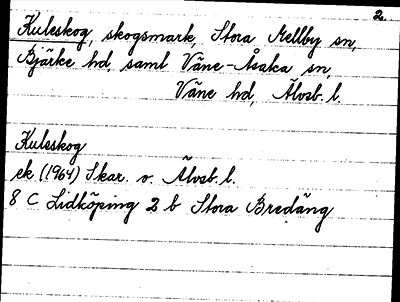 2.
Kuleskog, skogsmark, Stora Mellby sn,
Bjärke hd, samt Väne-Åsaka sn,
Väne hd, Älvsb. l.
Kuleskog
ek (1964) Skar. o. Älvsb. l.
8 C Lidköping 2 b Stora Bredäng